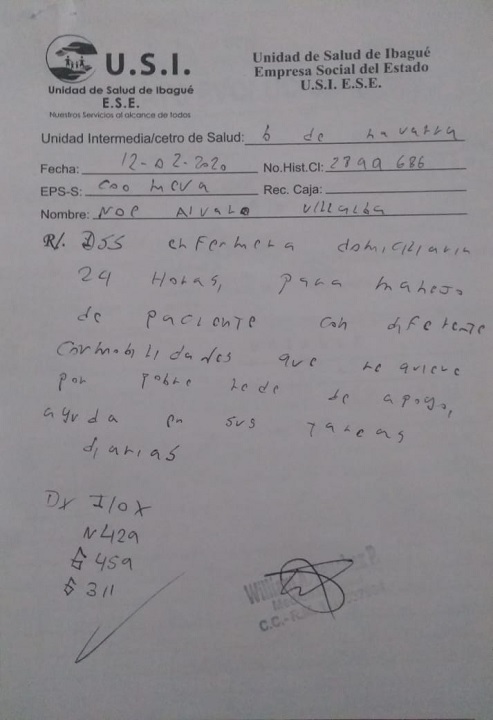 U.S.I.
Unidad de Salud de Ibagué
E.S.E.
Nuestros Servicios al alcance de todos
Unidad de Salud de Ibagué
Empresa Social del Estado
U.S.I. E.S.E.
Unidad Intermedia/cetro de Salud: 6 de navarra
Fecha: 12-02-2020 No.Hist.Cl: 2899 686
EPS-S: coomeva Rec. Caja:
Nombre: NOE Alvaro Villalba
R/. enfermera domiciliaria
24 Horas, para manejo
de paciente con diferente
que requiere
por pobre rede de apoyo,
ayuda en sus tareas
diarias
DX I10X
N429